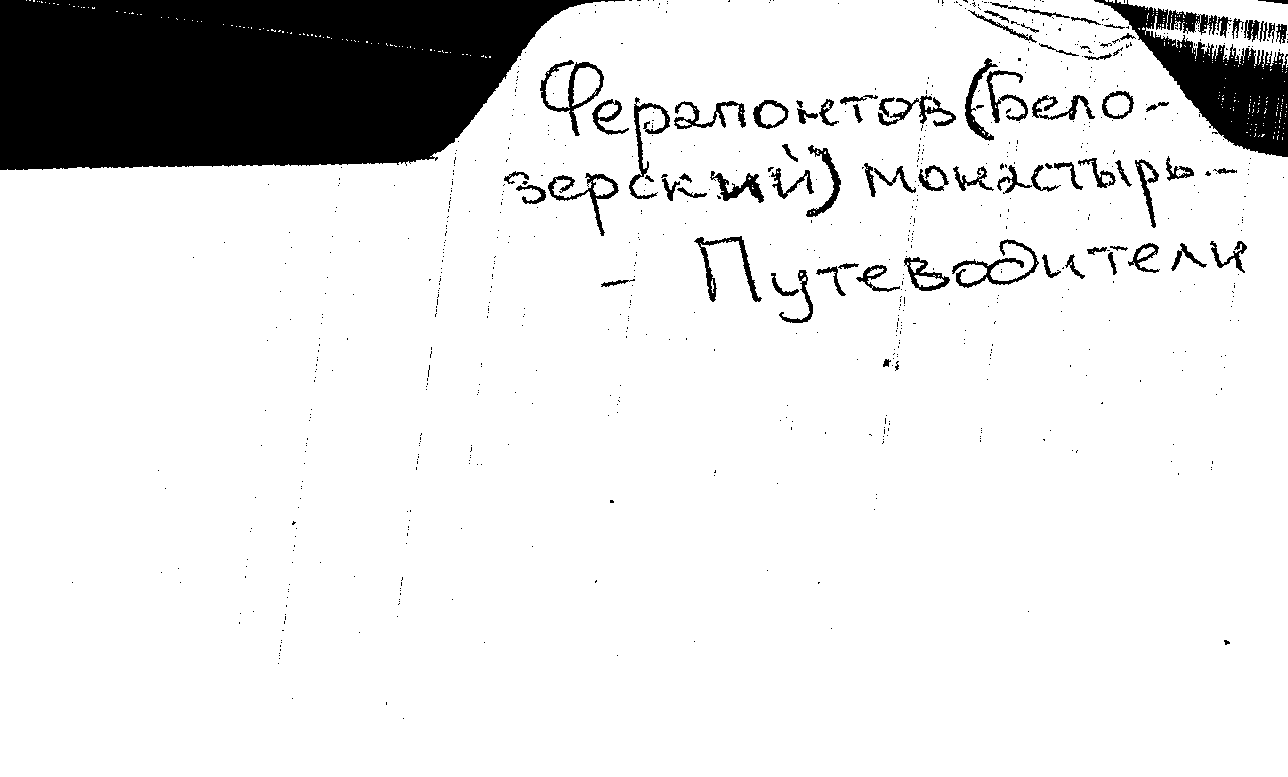 Ферапонтов (Бело-
зерский) монастырь.-
- Путеводители